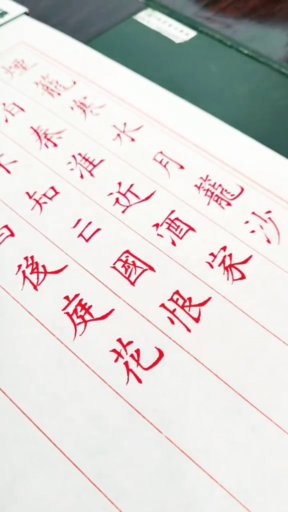 煙籠寒水月籠沙
泊秦淮近酒家
不知亡國恨
後庭花